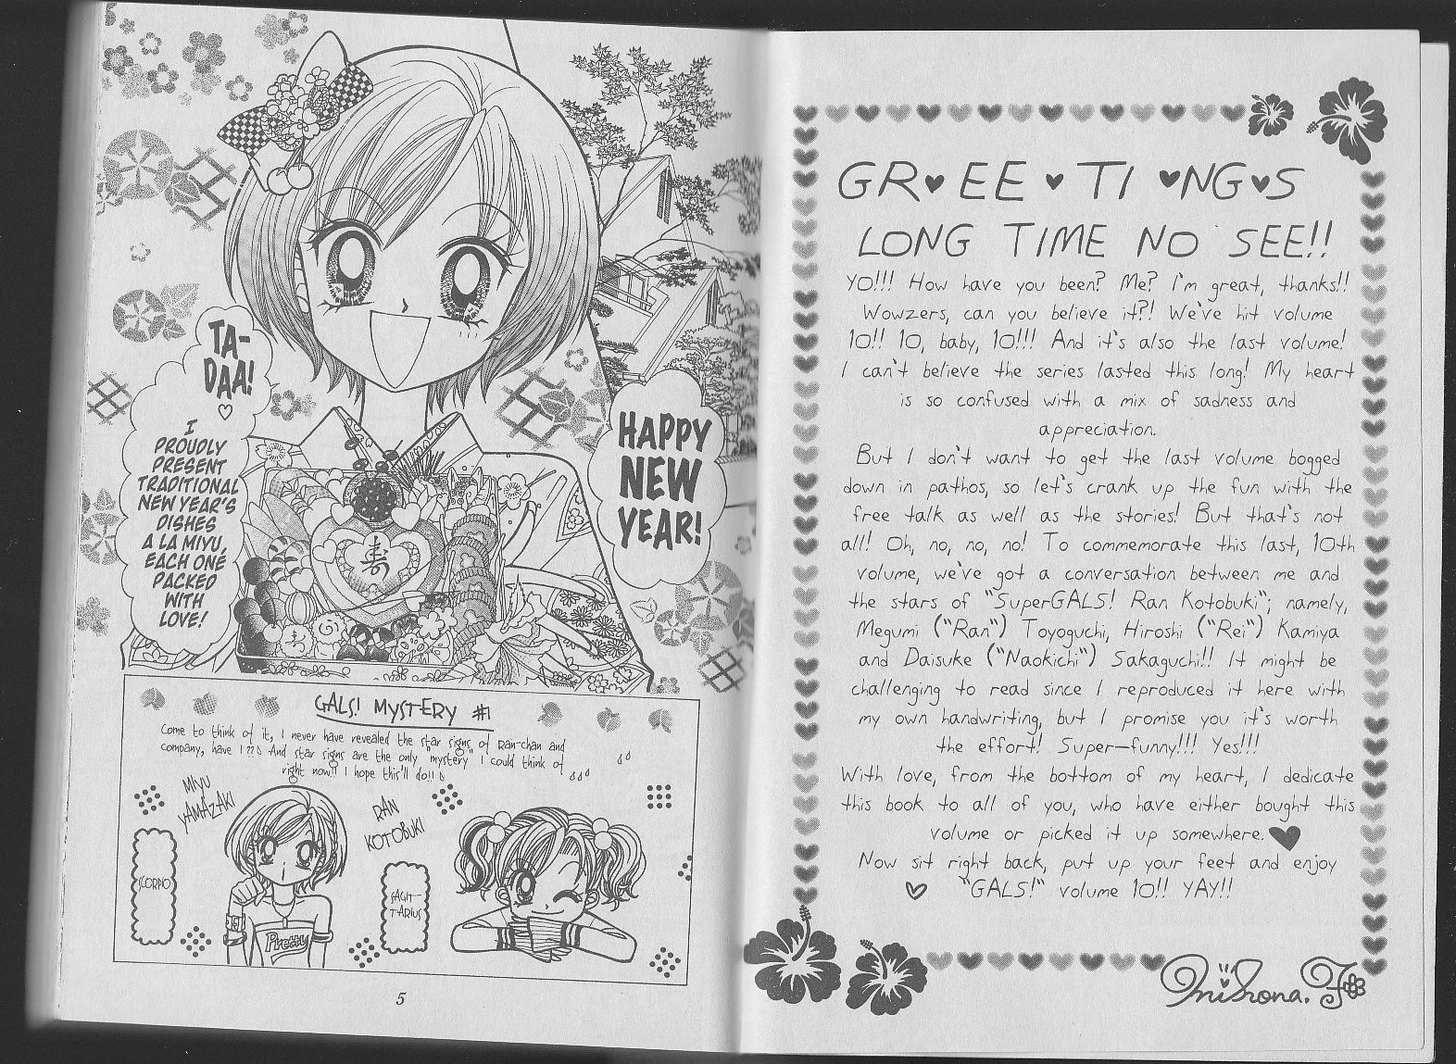 TA-
DAA!
♡
I
PROUDLY
PRESENT
TRADITIONAL
NEW YEAR'S
DISHES
A LA MIYU,
EACH ONE
PACKED
WITH
LOVE!
HAPPY
NEW
YEAR!
寿
GALS! MYSTERY #1
Come to think of it, I never have revealed the star signs of Ran-chan and
company, have I??♪ And star signs are the only "mystery" I could think of
right now!! I hope this'll do!!♪
MIYU
YAMAZAKI
SCORPIO
Pretty
RAN
KOTOBUKI
SAGIT-
TARIUS
5
GR♥EE♥TI♥NG♥S
LONG TIME NO SEE!!
YO!!! How have you been? Me? I'm great, thanks!!
Wowzers, can you believe it?! We've hit volume
10!! 10, baby, 10!!! And it's also the last volume!
I can't believe the series lasted this long! My heart
is so confused with a mix of sadness and
appreciation.
But I don't want to get the last volume bogged
down in pathos, so let's crank up the fun with the
free talk as well as the stories! But that's not
all! Oh, no, no, no! To commemorate this last, 10th
volume, we've got a conversation between me and
the stars of "SuperGALS! Ran Kotobuki"; namely,
Megumi ("Ran") Toyoguchi, Hiroshi ("Rei") Kamiya
and Daisuke ("Naokichi") Sakaguchi!! It might be
challenging to read since I reproduced it here with
my own handwriting, but I promise you it's worth
the effort! Super-funny!!! Yes!!!
With love, from the bottom of my heart, I dedicate
this book to all of you, who have either bought this
volume or picked it up somewhere.♥
Now sit right back, put up your feet and enjoy
♡ "GALS!" volume 10!! YAY!!
Mihona.F